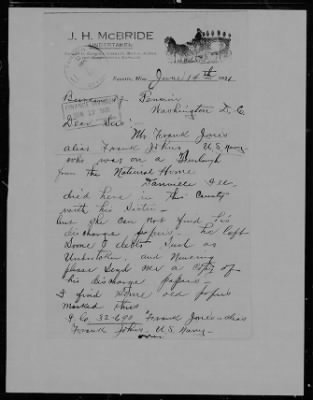 J. H. McBRIDE
UNDERTAKER
June 14th 1921
Bureau of Pension
Washington D. C.
Dear Sir:
Mr Frank Jones
alias Frank Johns U.S. Navy
who was on a Furlough
from the National Home
Danville Ill.
died here in this County
with his Sister-
but she can not find his
discharge papers. he left
Some debts Such as
Undertaker, and Nursing
please Send me a Copy of
his discharge papers-
I find Some old papers
Marked this
32-690 Frank Jones alias
Frank Johns, U.S. Navy-
over